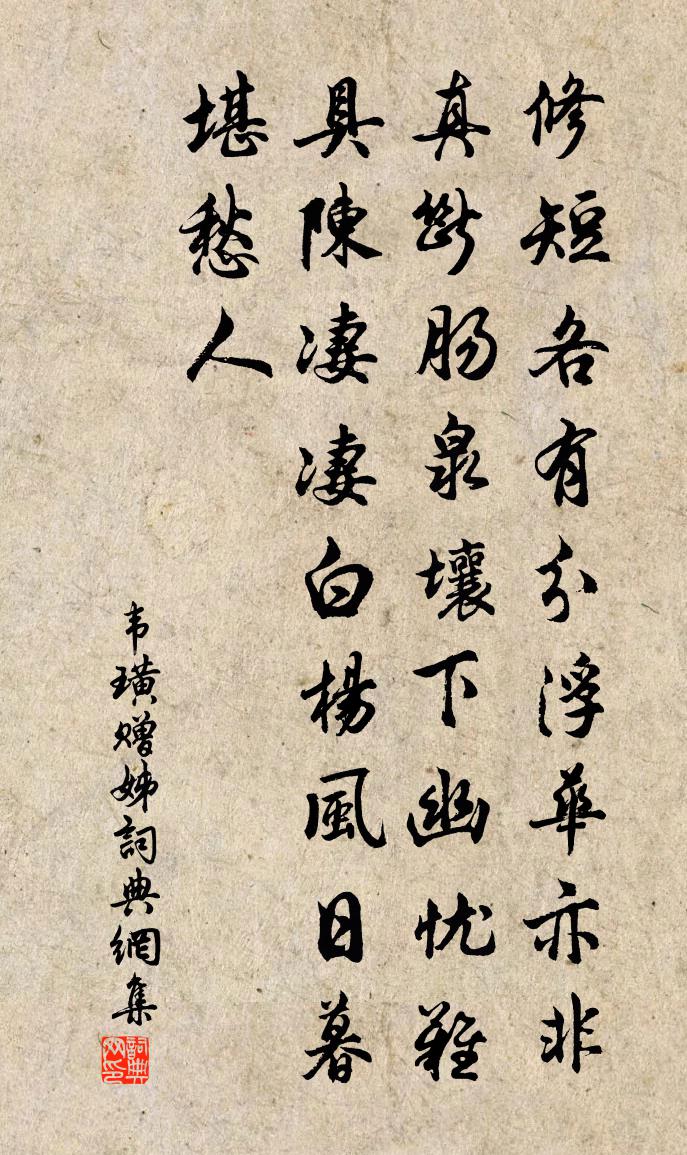 修短各有分浮華亦非
真斷肠泉壤下幽忧難
具陳淒淒白楊風日暮
堪愁人
韦璜赠姊詞典網集
詞典网印